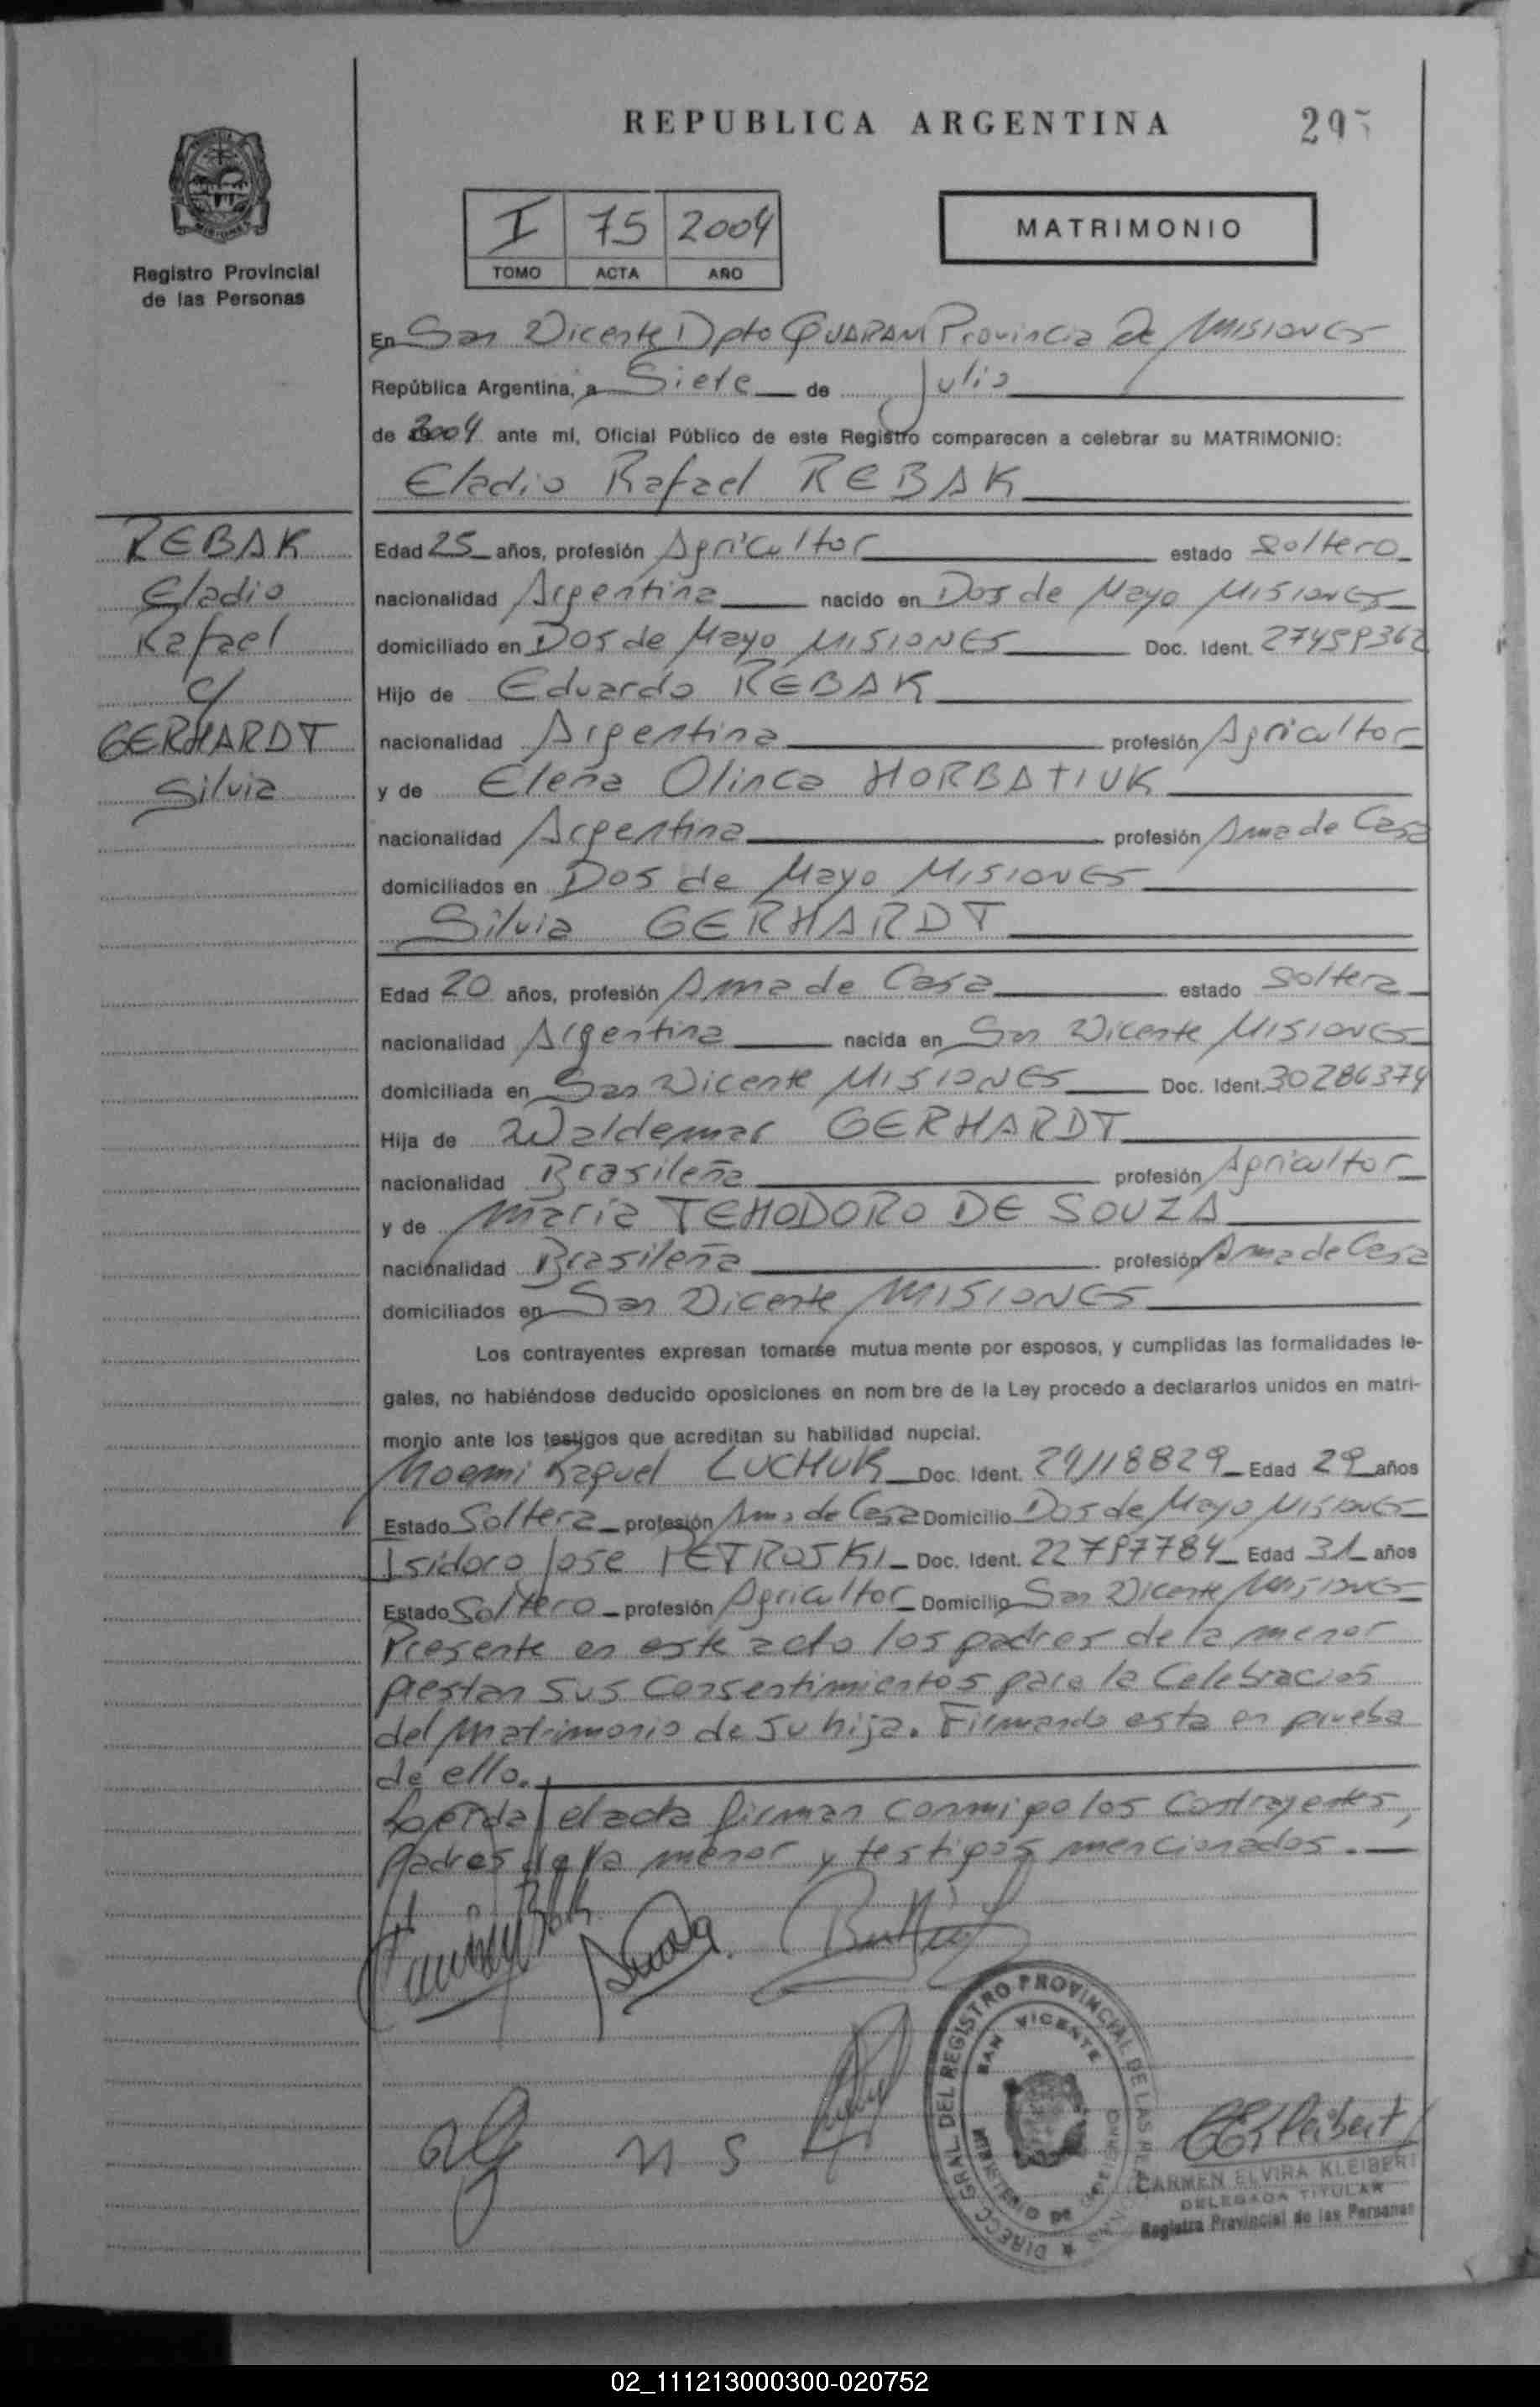 REPUBLICA ARGENTINA
Registro Provincial
de las Personas
I 75 2004
TOMO ACTA AÑO
MATRIMONIO
En San Vicente Dpto GUARANI Provincia De MISIONES
República Argentina, a Siete de Julio
de 2004 ante mí, Oficial Público de este Registro comparecen a celebrar su MATRIMONIO:
Eladio Rafael REBAK
REBAK
Eladio
Rafael
c/
GERHARDT
Silvia
Edad 25 años, profesión Agricultor estado Soltero
nacionalidad Argentina nacido en Dos de Mayo MISIONES
domiciliado en Dos de Mayo MISIONES Doc. Ident.
Hijo de Eduardo REBAK
nacionalidad Argentina profesión Agricultor
y de Elena Olinca HORBATIUK
nacionalidad Argentina profesión Ama de Casa
domiciliados en Dos de Mayo MISIONES
Silvia GERHARDT
Edad 20 años, profesión Ama de Casa estado Soltera
nacionalidad Argentina nacida en San Vicente MISIONES
domiciliada en San Vicente MISIONES Doc. Ident. 30286374
Hija de Waldemar GERHARDT
nacionalidad Brasileña profesión Agricultor
y de Maria TEHODORO DE SOUZA
nacionalidad Brasileña profesión Ama de Casa
domiciliados en San Vicente MISIONES
Los contrayentes expresan tomarse mutua mente por esposos, y cumplidas las formalidades le-
gales, no habiéndose deducido oposiciones en nom bre de la Ley procedo a declararlos unidos en matri-
monio ante los testigos que acreditan su habilidad nupcial.
Noemi Raquel LUCHUK Doc. Ident. 24118829 Edad 29 años
Estado Soltera profesión Ama de Casa Domicilio Dos de Mayo MISIONES
Isidoro Jose PETROSKI Doc. Ident. 22797784 Edad 31 años
Estado Soltero profesión Agricultor Domicilio San Vicente MISIONES
Presente en este acto los padres de la menor
prestan sus Consentimientos para la Celebracion
del Matrimonio de su hija. Firmando esta en prueba
de ello.
Leerda el acta firman conmigo los Contrayentes,
padres de la menor y testigos mencionados.
n s
DIRECC. GRAL. DEL REGISTRO PROVINCIAL DE LAS PERSONAS
SAN VICENTE
MINISTERIO DE GOBIERNO
CARMEN ELVIRA KLEIBERT
DELEGADA TITULAR
Registro Provincial de las Personas
02_111213000300-020752